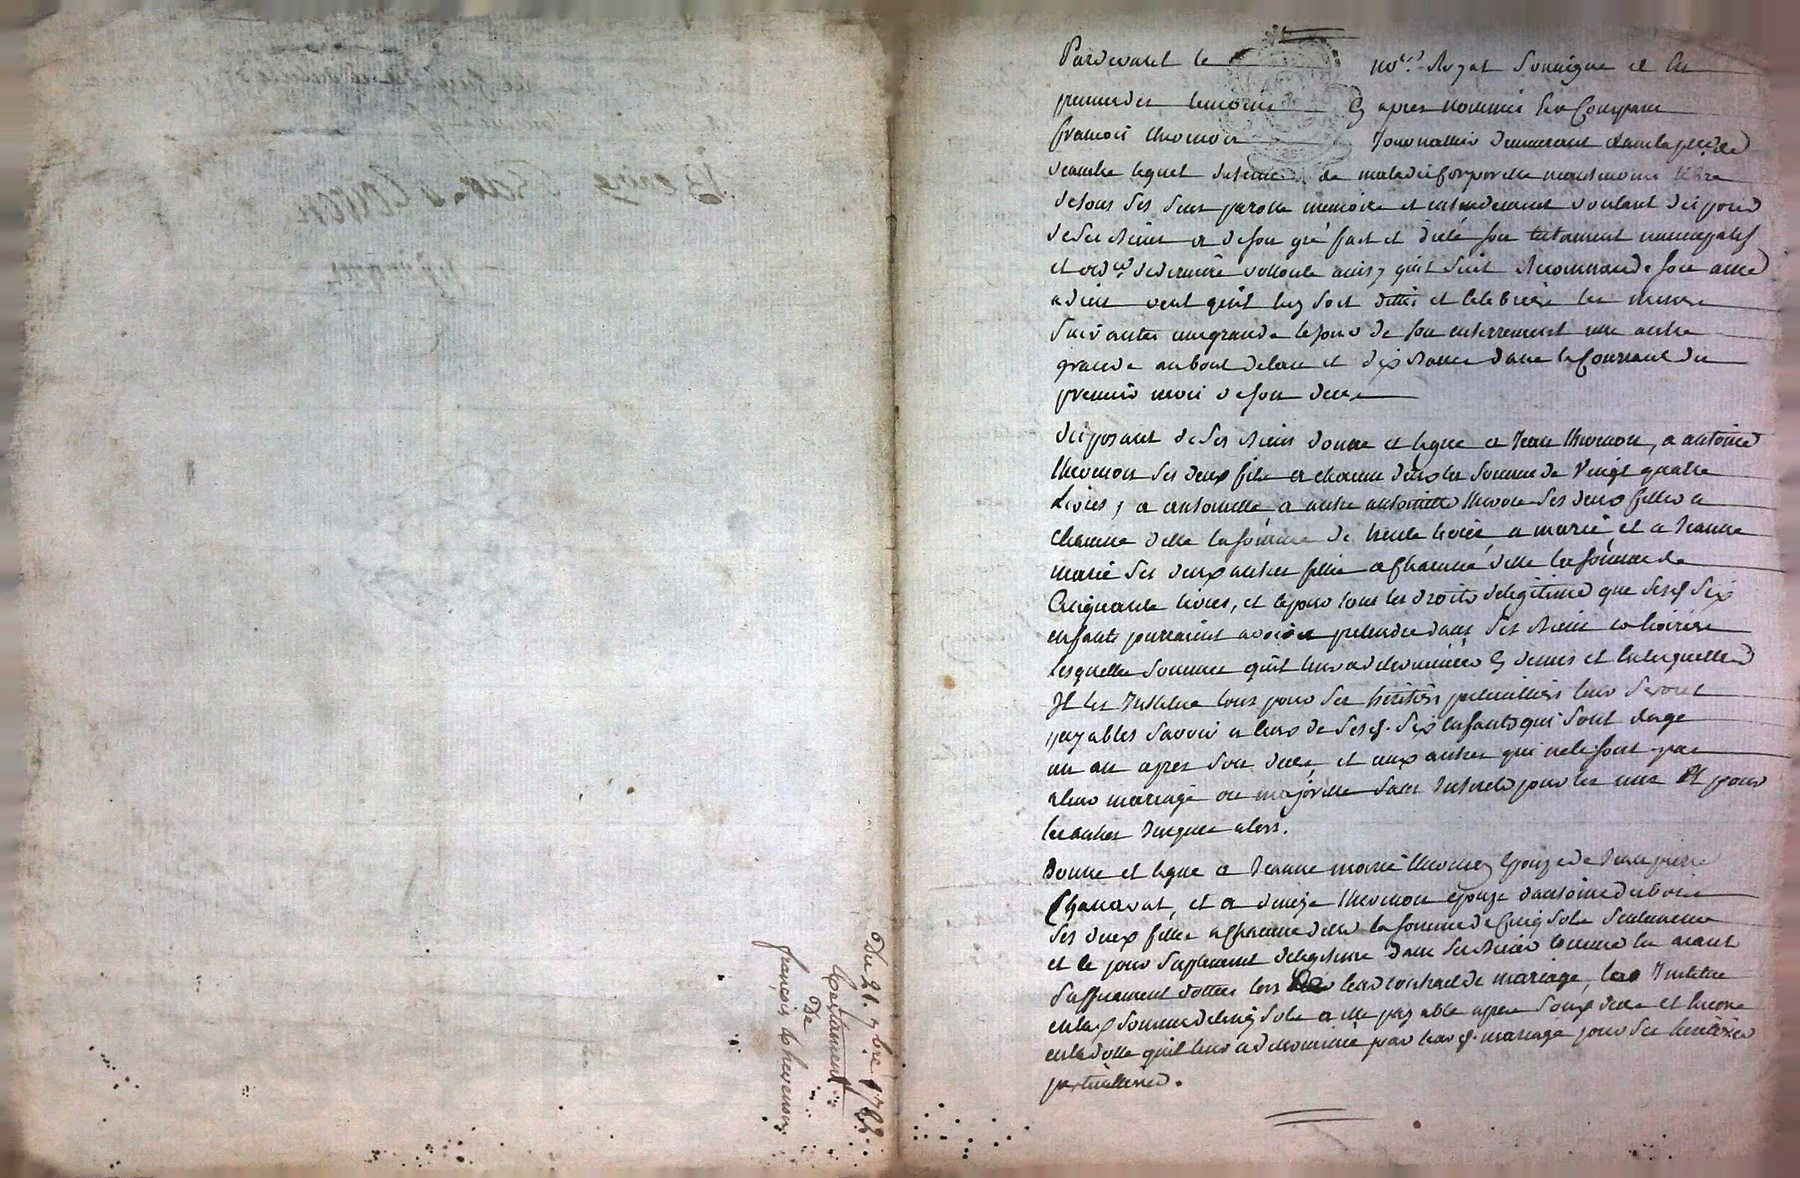 Du 21. 7bre 1782.
testament
De
françois thevenon
Pardevant le nore. Royal Soussigné et les
présence des temoins cy apres nommés fut Comparu
françois thevenon Journallier demeurant dans la psse. de
lequel detenu de maladie Corporelle neantmoins libre
de tous Ses Sens parolle memoire et entendement voulant disposer
de Ses Biens a de son gré fait et dicté son testament nuncupatif
et ordce. de derniere vollonte ainsy quil Suit Recommande son ame
a dieu veut quil luy Soit dittes et Celebrées les messes
Suivantes une grande le jour de son enterrement une autre
grande au bout de lan et dix Basses dans le Courrant du
premier mois de son deces
disposant de Ses Biens donne et legue a Jean thevenon, a antoine
thevenon Ses deux fils a chacun deux la Somme de Vingt quatre
Livres, a antoinette a autre antoinette thevenon Ses deux filles a
chacune delle la Somme de trente livres, a marie et a Jeanne
marie Ses deux autres filles a Chacune delle la Somme de
Cinquante livres, et ce pour tous les droits de legitime que Sesd. Six
enfants pourraient avoir et pretendre dans Ses Biens et hoirie
lesquelles Sommes quil leur a cy dessus et en lesquelles
Il les Institue tous pour Ses heritiers particulliers leur Seront
payables Savoir a ceux de Sesd. Six Enfants qui Sont dage
un an apres Son deces, et aux autres qui ne le Sont pas
a leur mariage ou majorité Sans Interets pour les uns Et pour
les autres Jusques alors.
Donne et legue a Jeanne marie thevenon Epouse de Jean pierre
et a thevenon epouse dantoine dubois
Ses deux filles a Chacune delle la Somme de Cinq Sols Seulement
et ce pour Suplement de legitime dans Ses Biens Comme les ayant
Suffisament dottées lors de leur contract de mariage, les Institue
en lad. Somme de Cinq Sols a elle payable apres Sond. deces et Encore
en la dotte quil leur a par leurd. mariage pour Ses heritieres
particulieres.